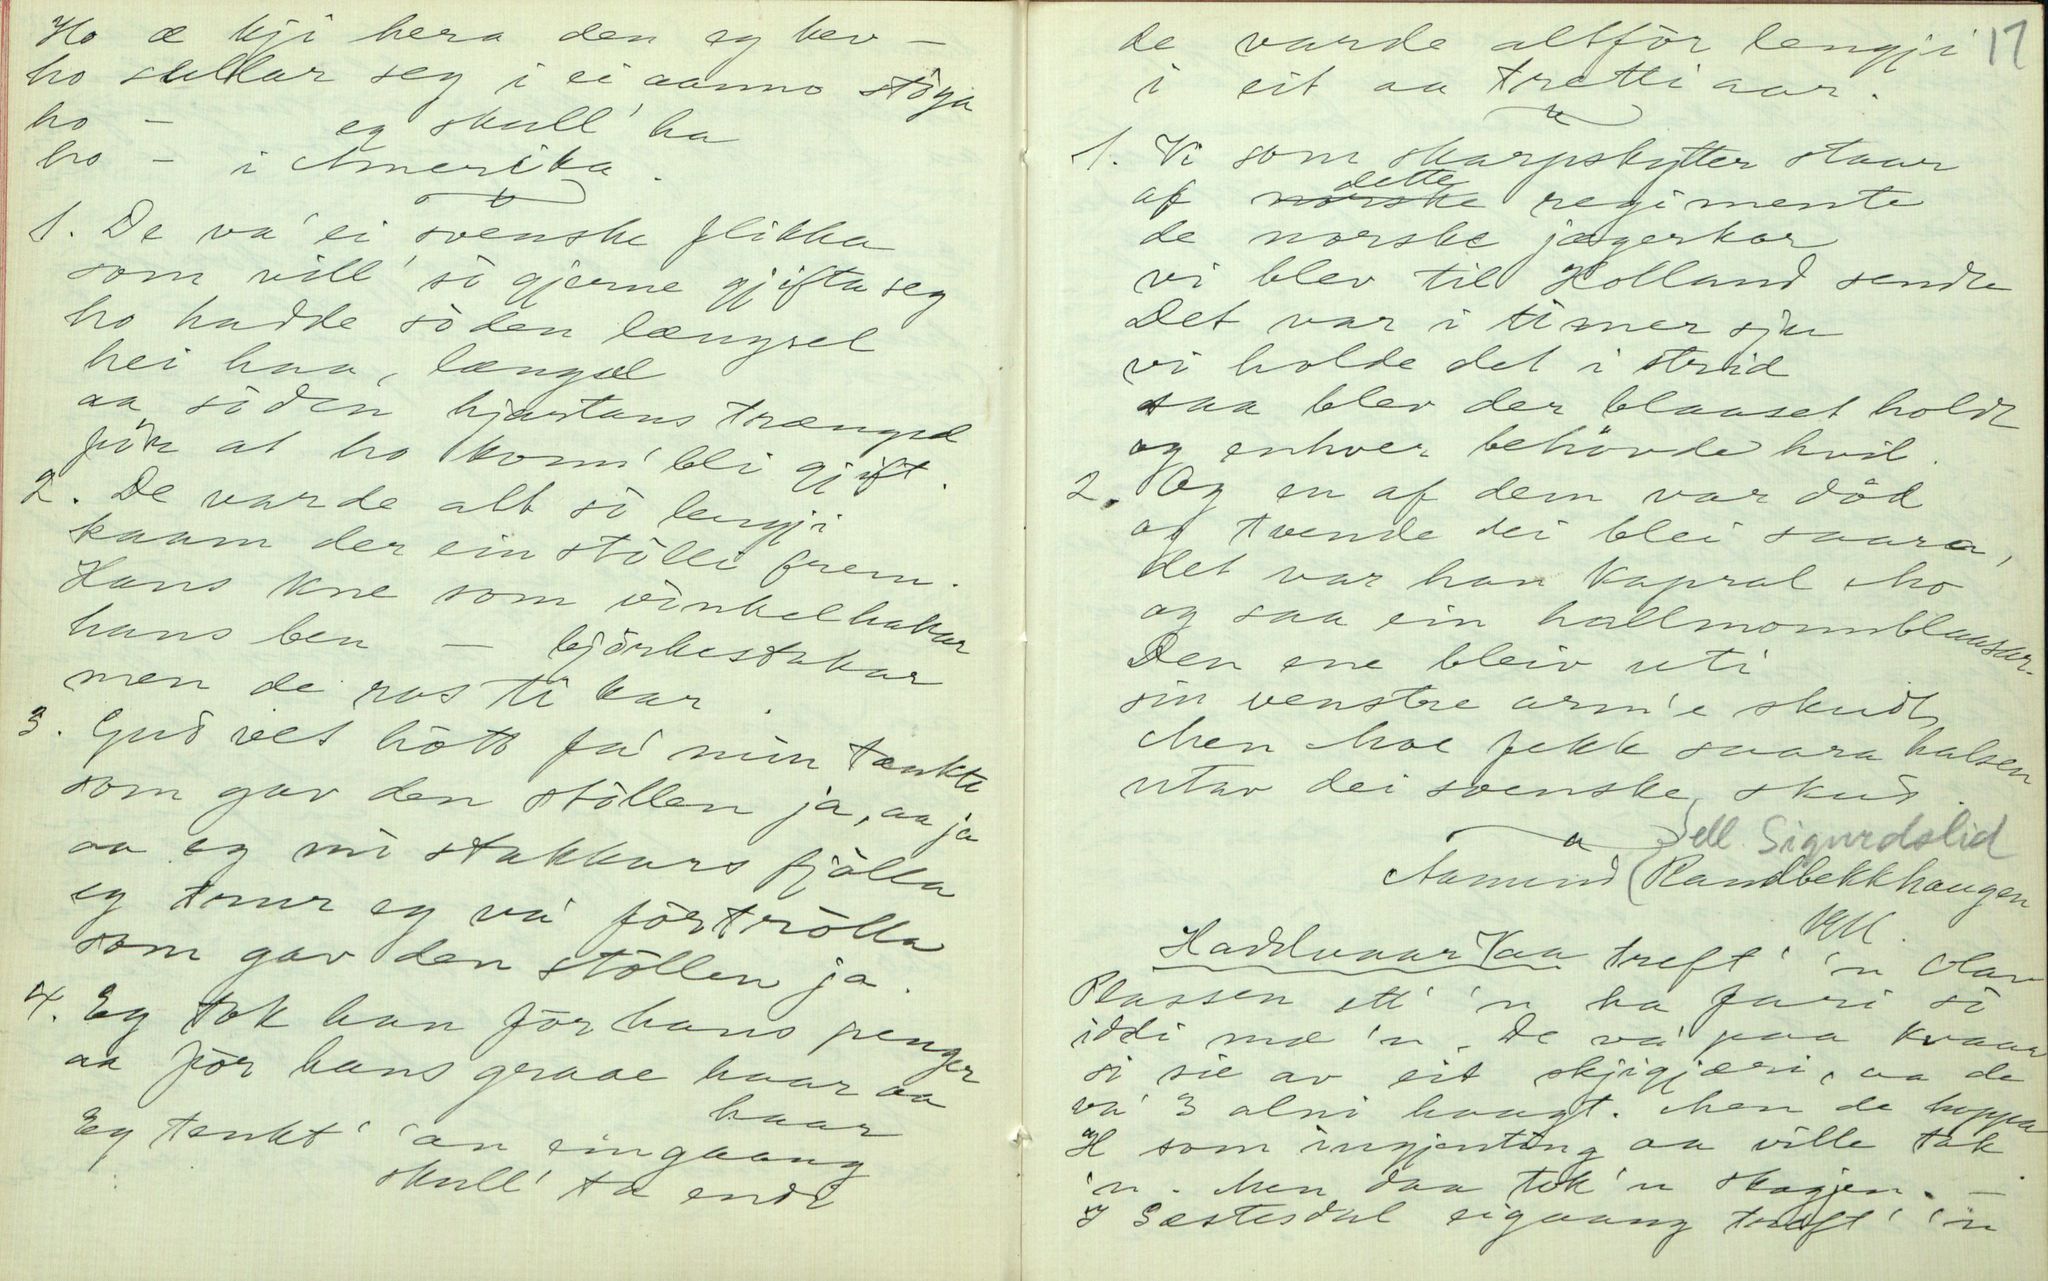 Ho æ kji hera den eg hev –
ho stellar seg i ei aanno stöga
ho – eg skull' ha
ho – i Amerika.
1. De va' ei svenske flikka
som vill' sö gjerne gjifta seg
ho hadde söden længsel
hei haa, længsel
aa söden hjartans trængsel
för at ho konn' bli gjift.
2. De varde alt sö lengji
kaam der ein stölli frem.
Hans kne som vinkelhakar
hans ben – björkestakar
men de ros ti kar.
3. Gud vet hött fa' min tankte
som gav den stöllen ja, aa ja
aa eg mi stakkars fjölla
eg truur eg va' förtrölla
som gav den stöllen ja.
4. Eg tok han för hans penger
aa för hans graae haar aa
haar
Eg tenkt' 'an eingaang
skull' ta endi
17
de varde altför lengji
i eit aa tretti aar.
1. Vi som skarpskytter staar
af norske dette regimente
de norske jægerkor
vi blev til Holland sendte
Det var i timer sju
vi holde det i strid
saa blev der blaaset holdt
og enhver behövde hvil.
2. Og en af dem var död
og tvende dei blei saara,
det var han Kapral Mo
og saa ein hallmonnblaasar.
Den ene bleiv uti
sin venstre arm'e skudt,
Men Moe fekk saara halsen
utav dei svenske skud.
Sell. Sigurdslid
Aamund (Randbekkhaugen
Hadduaar Kaa treft' 'n Olav
Plassen ett' 'n ha fari sö
iddi mæ 'n. De va' paa kvaar
si sie av eit skjigjæri, aa de
va' 3 alni haagt. Men de hoppa
H som ingjenting aa ville tak
'n. Men daa tok 'n skogjen. –
I Sæstesdal eigaang treft' 'n